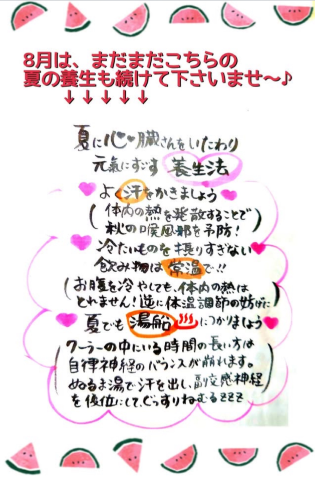 8月は、まだまだこちらの
夏の養生も続けて下さいませ〜♪
↓↓↓↓↓
夏に心♥臓さんをいたわり
元氣にすごす 養生法
よく汗をかきましょう
(体内の熱を発散することで
秋の喉風邪を予防!)
冷たいものを摂りすぎない
飲み物は常温で!!
(お腹を冷やしても、体内の熱は
とれません!逆に体温調節の妨げに)
夏でも湯船♨につかりましょう
(クーラーの中にいる時間の長い方は
自律神経のバランスが崩れます。
ぬるま湯で汗を出し、副交感神経
を優位にして、ぐっすりねむるZZZ)